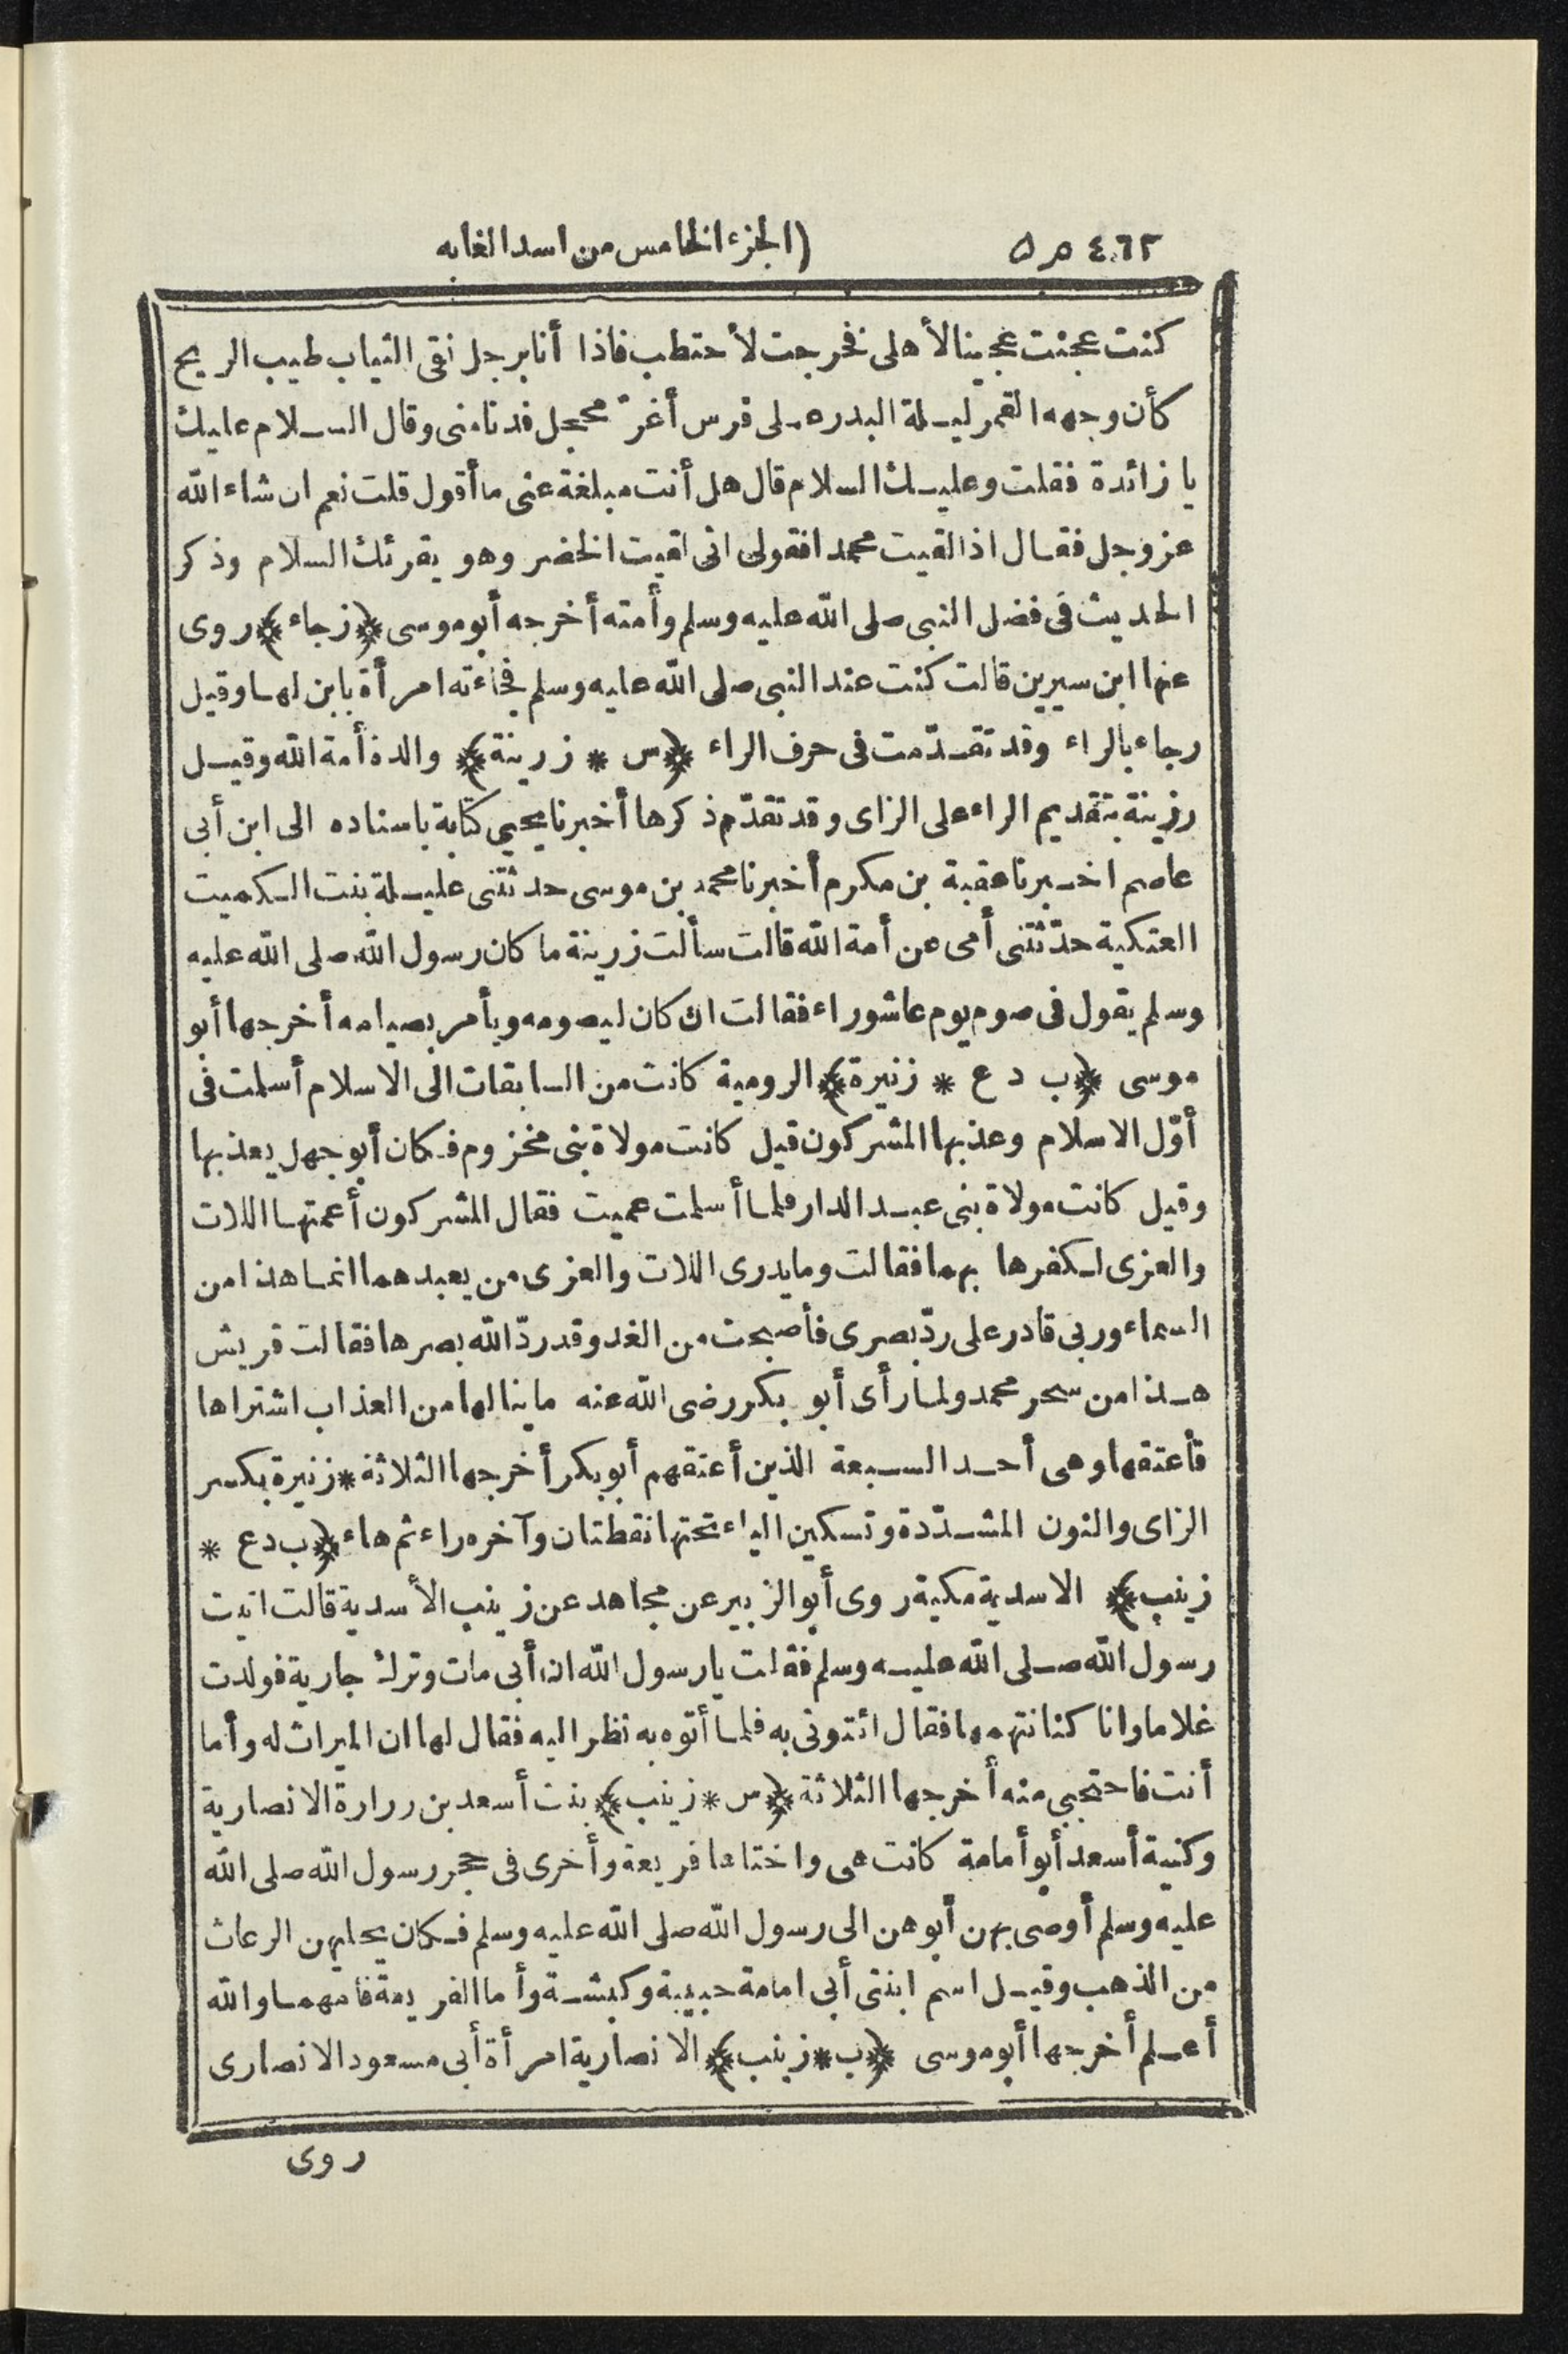 ٤٦٢ ص ٥ (الجزء الخامس من اسد الغابه
كنت عجنت عجينا لأهلى فخرجت لأحتطب فاذا أنا برجل نقى الثياب طيب الريح
كأن وجهه القمر ليلة البدر على فرس أغرّ محجل فدنا منى وقال السلام عليك
يا زائدة فقلت وعليك السلام قال هل أنت مبلغة عنى ما أقول قلت نعم ان شاء الله
عز وجل فقال اذا لقيت محمدا فقولى انى لقيت الخضر وهو يقرئك السلام وذكر
الحديث فى فضل النبى صلى الله عليه وسلم وأمته أخرجه أبو موسى ﴿زجاء﴾ روى
عنها ابن سيرين قالت كنت عند النبى صلى الله عليه وسلم فجاءته امرأة بابن لها وقيل
رجاء بالراء وقد تقدّمت فى حرف الراء ﴿س * زرينة﴾ والدة أمة الله وقيل
رزينة بتقديم الراء على الزاى وقد تقدّم ذكرها أخبرنا يحيى كتابة باسناده الى ابن أبى
عاصم اخبرنا عقبة بن مكرم أخبرنا محمد بن موسى حدثتنى عليلة بنت الكميت
العتكية حدّثتنى أمى عن أمة الله قالت سألت زرينة ما كان رسول الله صلى الله عليه
وسلم يقول فى صوم يوم عاشوراء فقالت ان كان ليصومه ويأمر بصيامه أخرجها أبو
موسى ﴿ب د ع * زنيرة﴾ الرومية كانت من السابقات الى الاسلام أسلمت فى
أوّل الاسلام وعذبها المشركون قيل كانت مولاة بنى مخزوم فكان أبو جهل يعذبها
وقيل كانت مولاة بنى عبد الدار فلما أسلمت عميت فقال المشركون أعمتها اللات
والعزى لكفرها بهما فقالت وما يدرى اللات والعزى من يعبدهما انما هذا من
السماء وربى قادر على ردّ بصرى فأصبحت من الغد وقد ردّ الله بصرها فقالت قريش
هذا من سحر محمد ولما رأى أبو بكر رضى الله عنه ما ينالها من العذاب اشتراها
فأعتقها وهى أحد السبعة الذين أعتقهم أبو بكر أخرجها الثلاثة * زنيرة بكسر
الزاى والنون المشدّدة وتسكين الياء تحتها نقطتان وآخره راء ثم هاء ﴿ب د ع *
زينب﴾ الاسدية مكية روى أبو الزبير عن مجاهد عن زينب الأسدية قالت اتيت
رسول الله صلى الله عليه وسلم فقلت يا رسول الله ان أبى مات وترك جارية فولدت
غلاما وانا كنا نتهمها فقال ائتونى به فلما أتوه به نظر اليه فقال لها ان الميراث له وأما
أنت فاحتجبى منه أخرجها الثلاثة ﴿س * زينب﴾ بنت أسعد بن زرارة الانصارية
وكنية أسعد أبو أمامة كانت هى واختاها فريعة وأخرى فى حجر رسول الله صلى الله
عليه وسلم أوصى بهن أبوهن الى رسول الله صلى الله عليه وسلم فكان يحليهن الرعاث
من الذهب وقيل اسم ابنتى أبى امامة حبيبة وكبشة وأما الفريعة فامهما والله
أعلم أخرجها أبو موسى ﴿ب * زينب﴾ الانصارية امرأة أبى مسعود الانصارى
روى